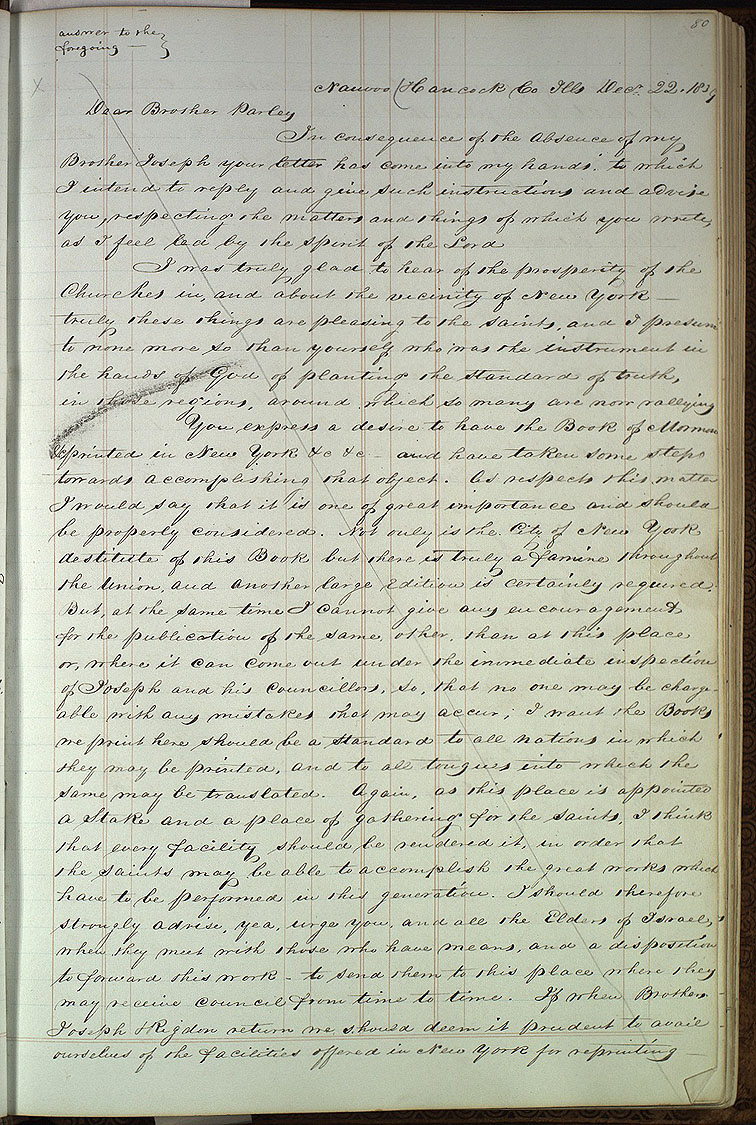 80
answer to the
foregoing —
Nauvoo (Hancock Co Ills Decr. 22. 1839
Dear Brother Parley
In consequence of the absence of my
Brother Joseph your letter has come into my hands. to which
I intend to reply and give such instructions and advise
you, respecting the matters and things of which you write,
as I feel led by the spirit of the Lord
I was truly glad to hear of the prosperity of the
Churches in, and about the vicinity of New York —
truly these things are pleasing to the saints, and I presume
to none more so than yourself who was the instrument in
the hands of God of planting the standard of truth,
in those regions, around which so many are now rallying
You express a desire to have the Book of Mormon
reprinted in New York &c &c — and have taken some steps
towards accomplishing that object. As respects this matter
I would say that it is one of great importance and should
be properly considered. Not only is the City of New York
destitute of this Book but there is truly a famine throughout
the Union, and another large Edition is certainly required.
But, at the same time I cannot give any encouragement
for the publication of the same, other, than at this place
or, where it can come out under the immediate inspection
of Joseph and his councillors, so, that no one may be charge-
able with any mistakes that may accur; I want the Books
we print here should be a standard to all nations in which
they may be printed, and to all tongues into which the
same may be translated. Again, as this place is appointed
a Stake and a place of gathering for the saints, I think
that every facility should be rendered it, in order that
the saints may be able to accomplish the great works which
have to be performed in this generation. I should therefore
strongly advise, yea, urge you, and all the Elders of Israel,
when they meet with those who have means, and a disposition
to forward this work — to send them to this place where they
may receive council from time to time. If when Brothers
Joseph & Rigdon return we should deem it prudent to avail
ourselves of the facilities offered in New York for reprinting —